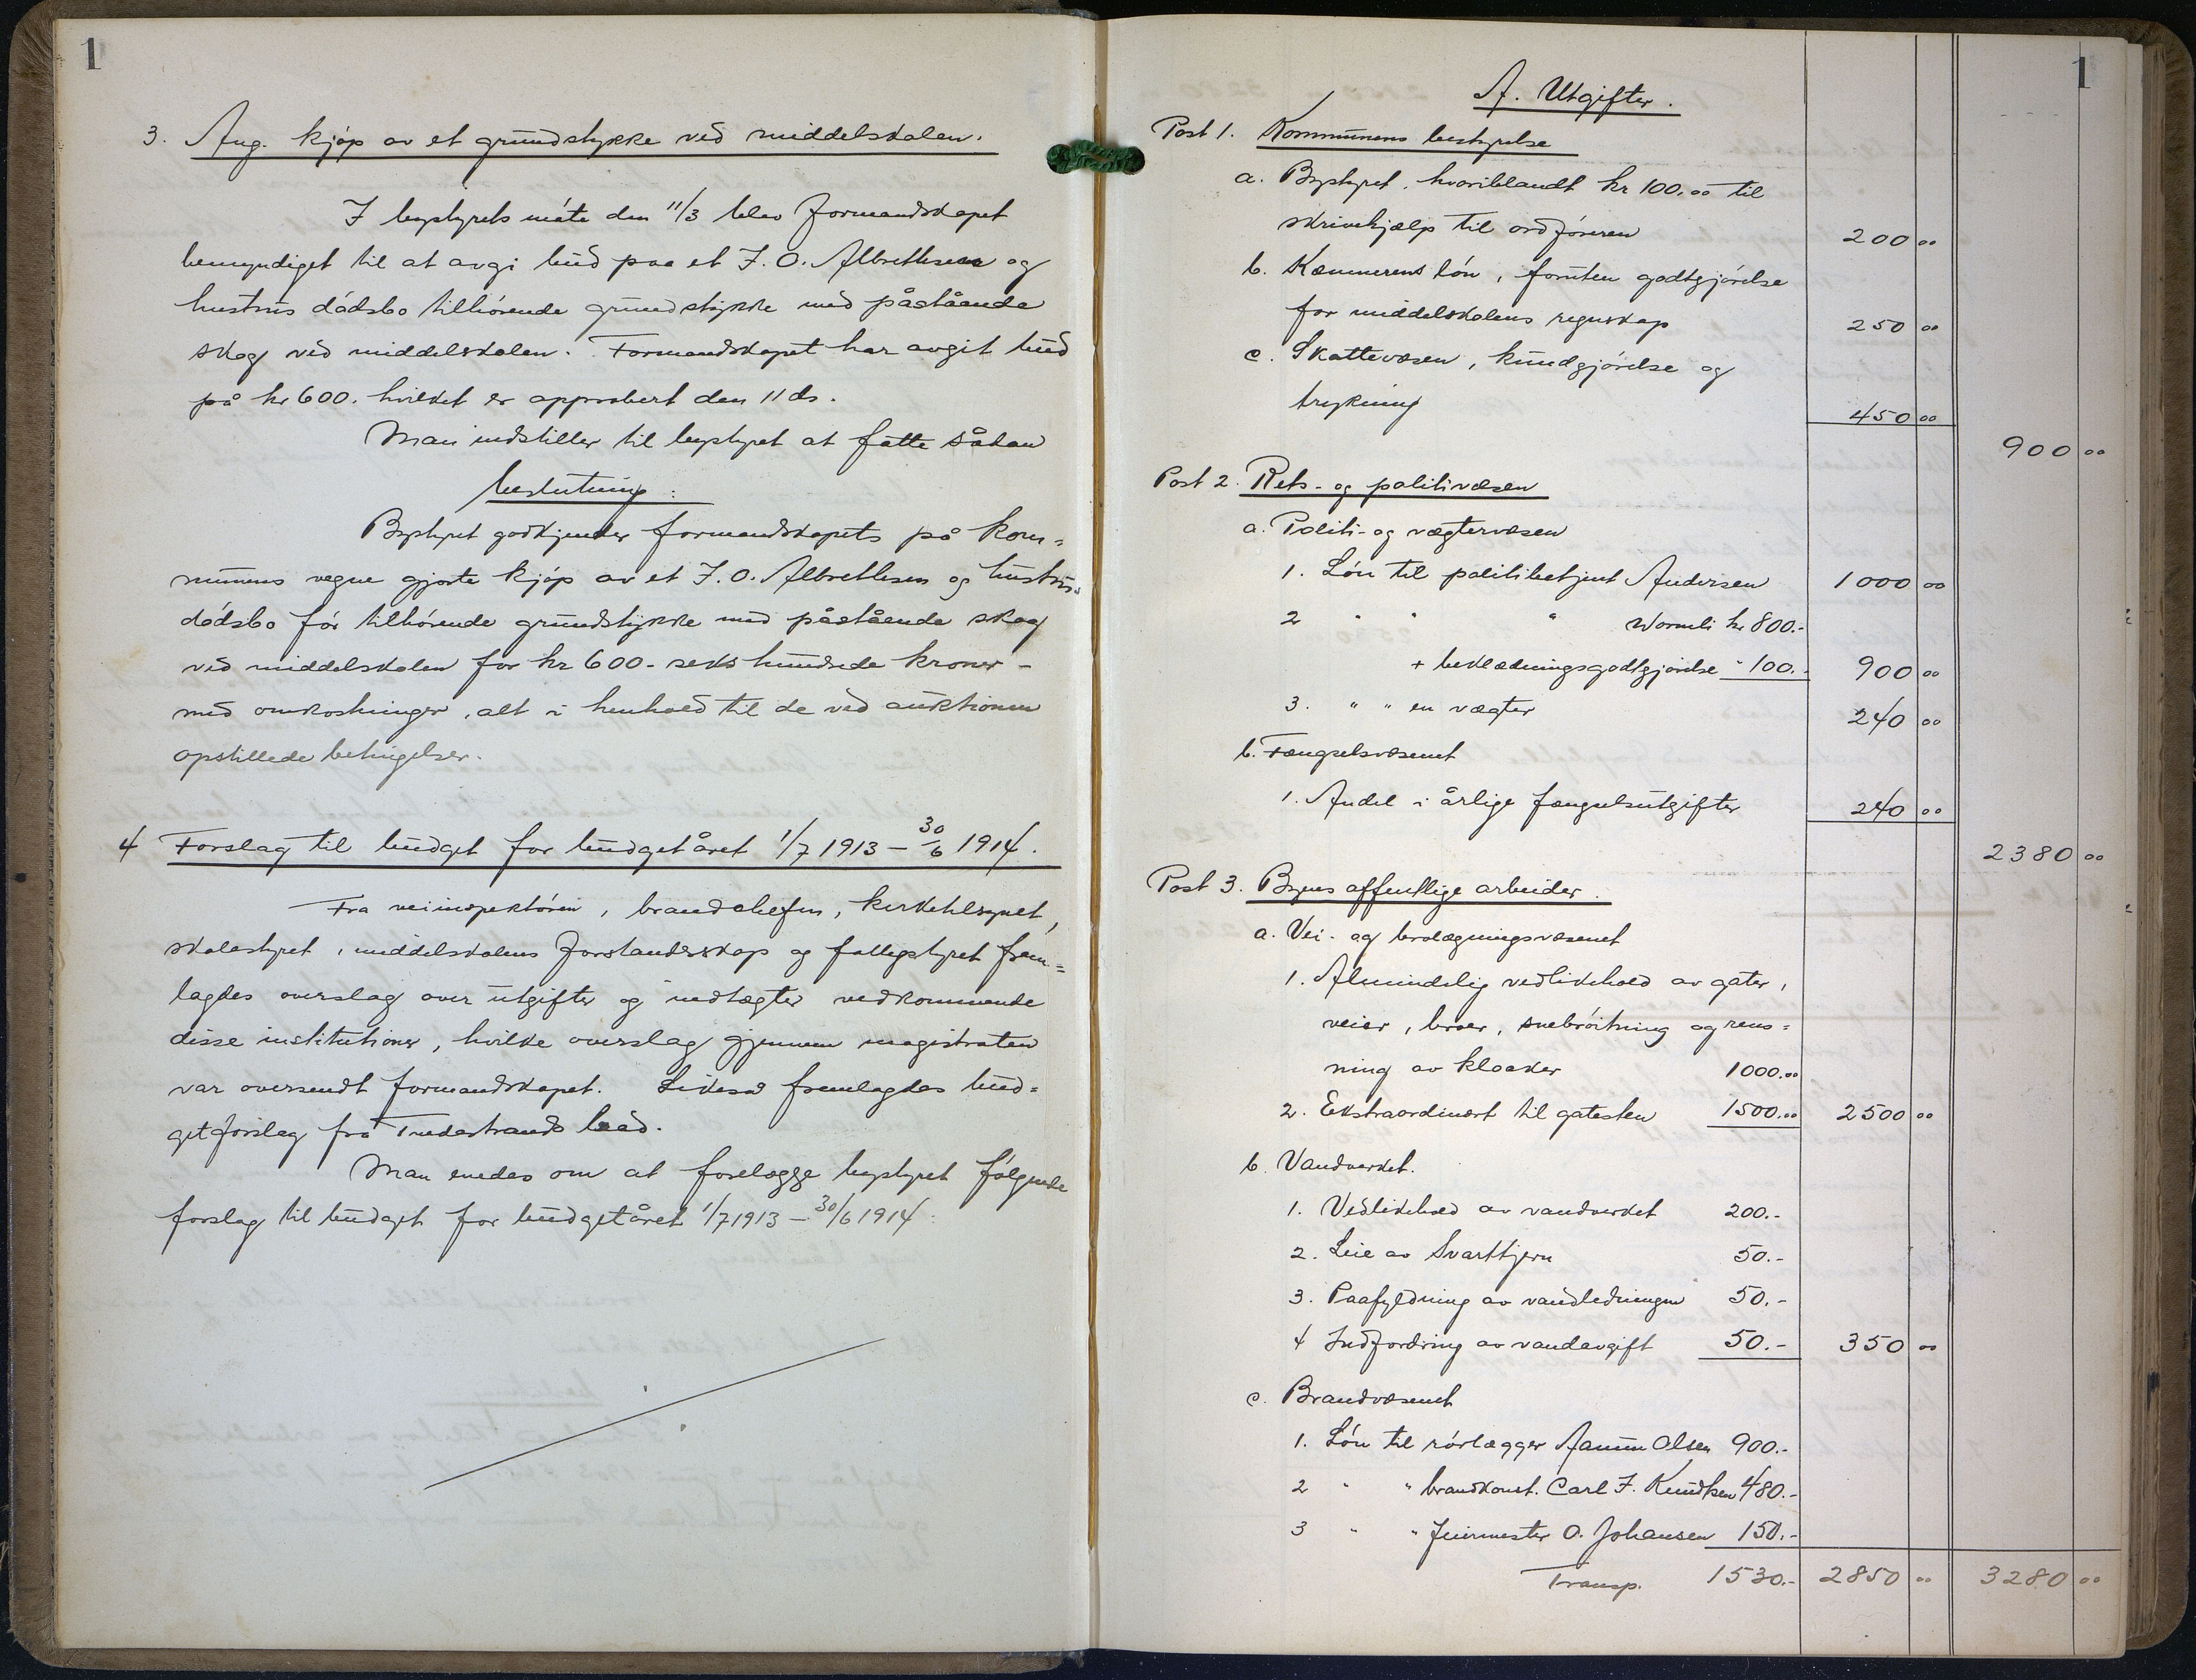 1
3. Ang. kjøp av et grundstykke ved middelskolen.
I bystyrets møte den 11/3 blev formandskapet
bemyndiget til at avgi bud paa et J. O. Albrethsens og
hustrus dødsbo tilhørende grundstykke med påstående
skog ved middelskolen. Formandskapet har avgit bud
på kr 600. hvilket er approbert den 11 ds.
Man indstiller til bystyret at fatte sådan
beslutning:
Bystyret godkjender formandskapets på kom=
munens vegne gjorte kjøp av et J. O. Albrethsen og hustrus
dødsbo før tilhørende grundstykke med påstående skog
ved middelskolen for kr 600 - seks hundrede kroner -
med omkostninger, alt i henhold til de ved auktionen
opstillede betingelser.
4 Forslag til budget for budgetåret 1/7 1913 - 30/6 1914.
Fra veiinspektøren, brandchefen, kirketilsynet,
skolestyret, middelskolens forstanderskap og fattigstyret frem=
lagdes overslag over utgifter og indtægter vedkommende
disse institutioner, hvilke overslag gjennem magistraten
var oversendt formandskapet. Likeså fremlagdes bud=
getforslag fra Tvedestrands bad.
Man enedes om at forelægge bystyret følgende
forslag til budget for budgetåret 1/7 1913 - 30/6 1914:
1
A. Utgifter.
Post 1. Kommunens bestyrelse
a. Bystyret, hvoriblandt kr 100.00 til
skrivehjælp til ordføreren 200 00
b. Kæmnerens løn, foruten godtgjørelse
for middelskolens regnskap 250 00
c. Skattevæsen, kundgjørelse og
trykning 450 00
900 00
Post 2. Rets- og politivæsen
a. Politi- og vægtervæsen
1. Løn til politibetjent Andersen 1000 00
2 " " " Wormli kr 800.-
+ beklædningsgodtgjørelse " 100.- 900 00
3. " " en vægter 240 00
b. Fængselsvæsenet
1. Andel i årlige fængselsutgifter 240 00
2380 00
Post 3. Byens offentlige arbeider.
a. Vei- og brolægningsvæsenet
1. Almindelig vedlikehold av gater,
veier, broer, snebrøitning og rens=
ning av kloaker 1000.00
2. Ekstraordinært til gatesten 1500.00 2500 00
b. Vandverket.
1. Vedlikehold av vandverket 200.-
2. Leie av Svarttjern 50.-
3. Paafyldning av vandledningen 50.-
4 Indfordring av vandavgift 50.- 350 00
c. Brandvæsenet
1. Løn til rørlægger Aanun Olsen 900.-
2 " " brandkonst. Carl F. Knudsen 480.-
3 " " feiermester O. Johansen 150.-
Transp. 1530.- 2850 00 3280 00